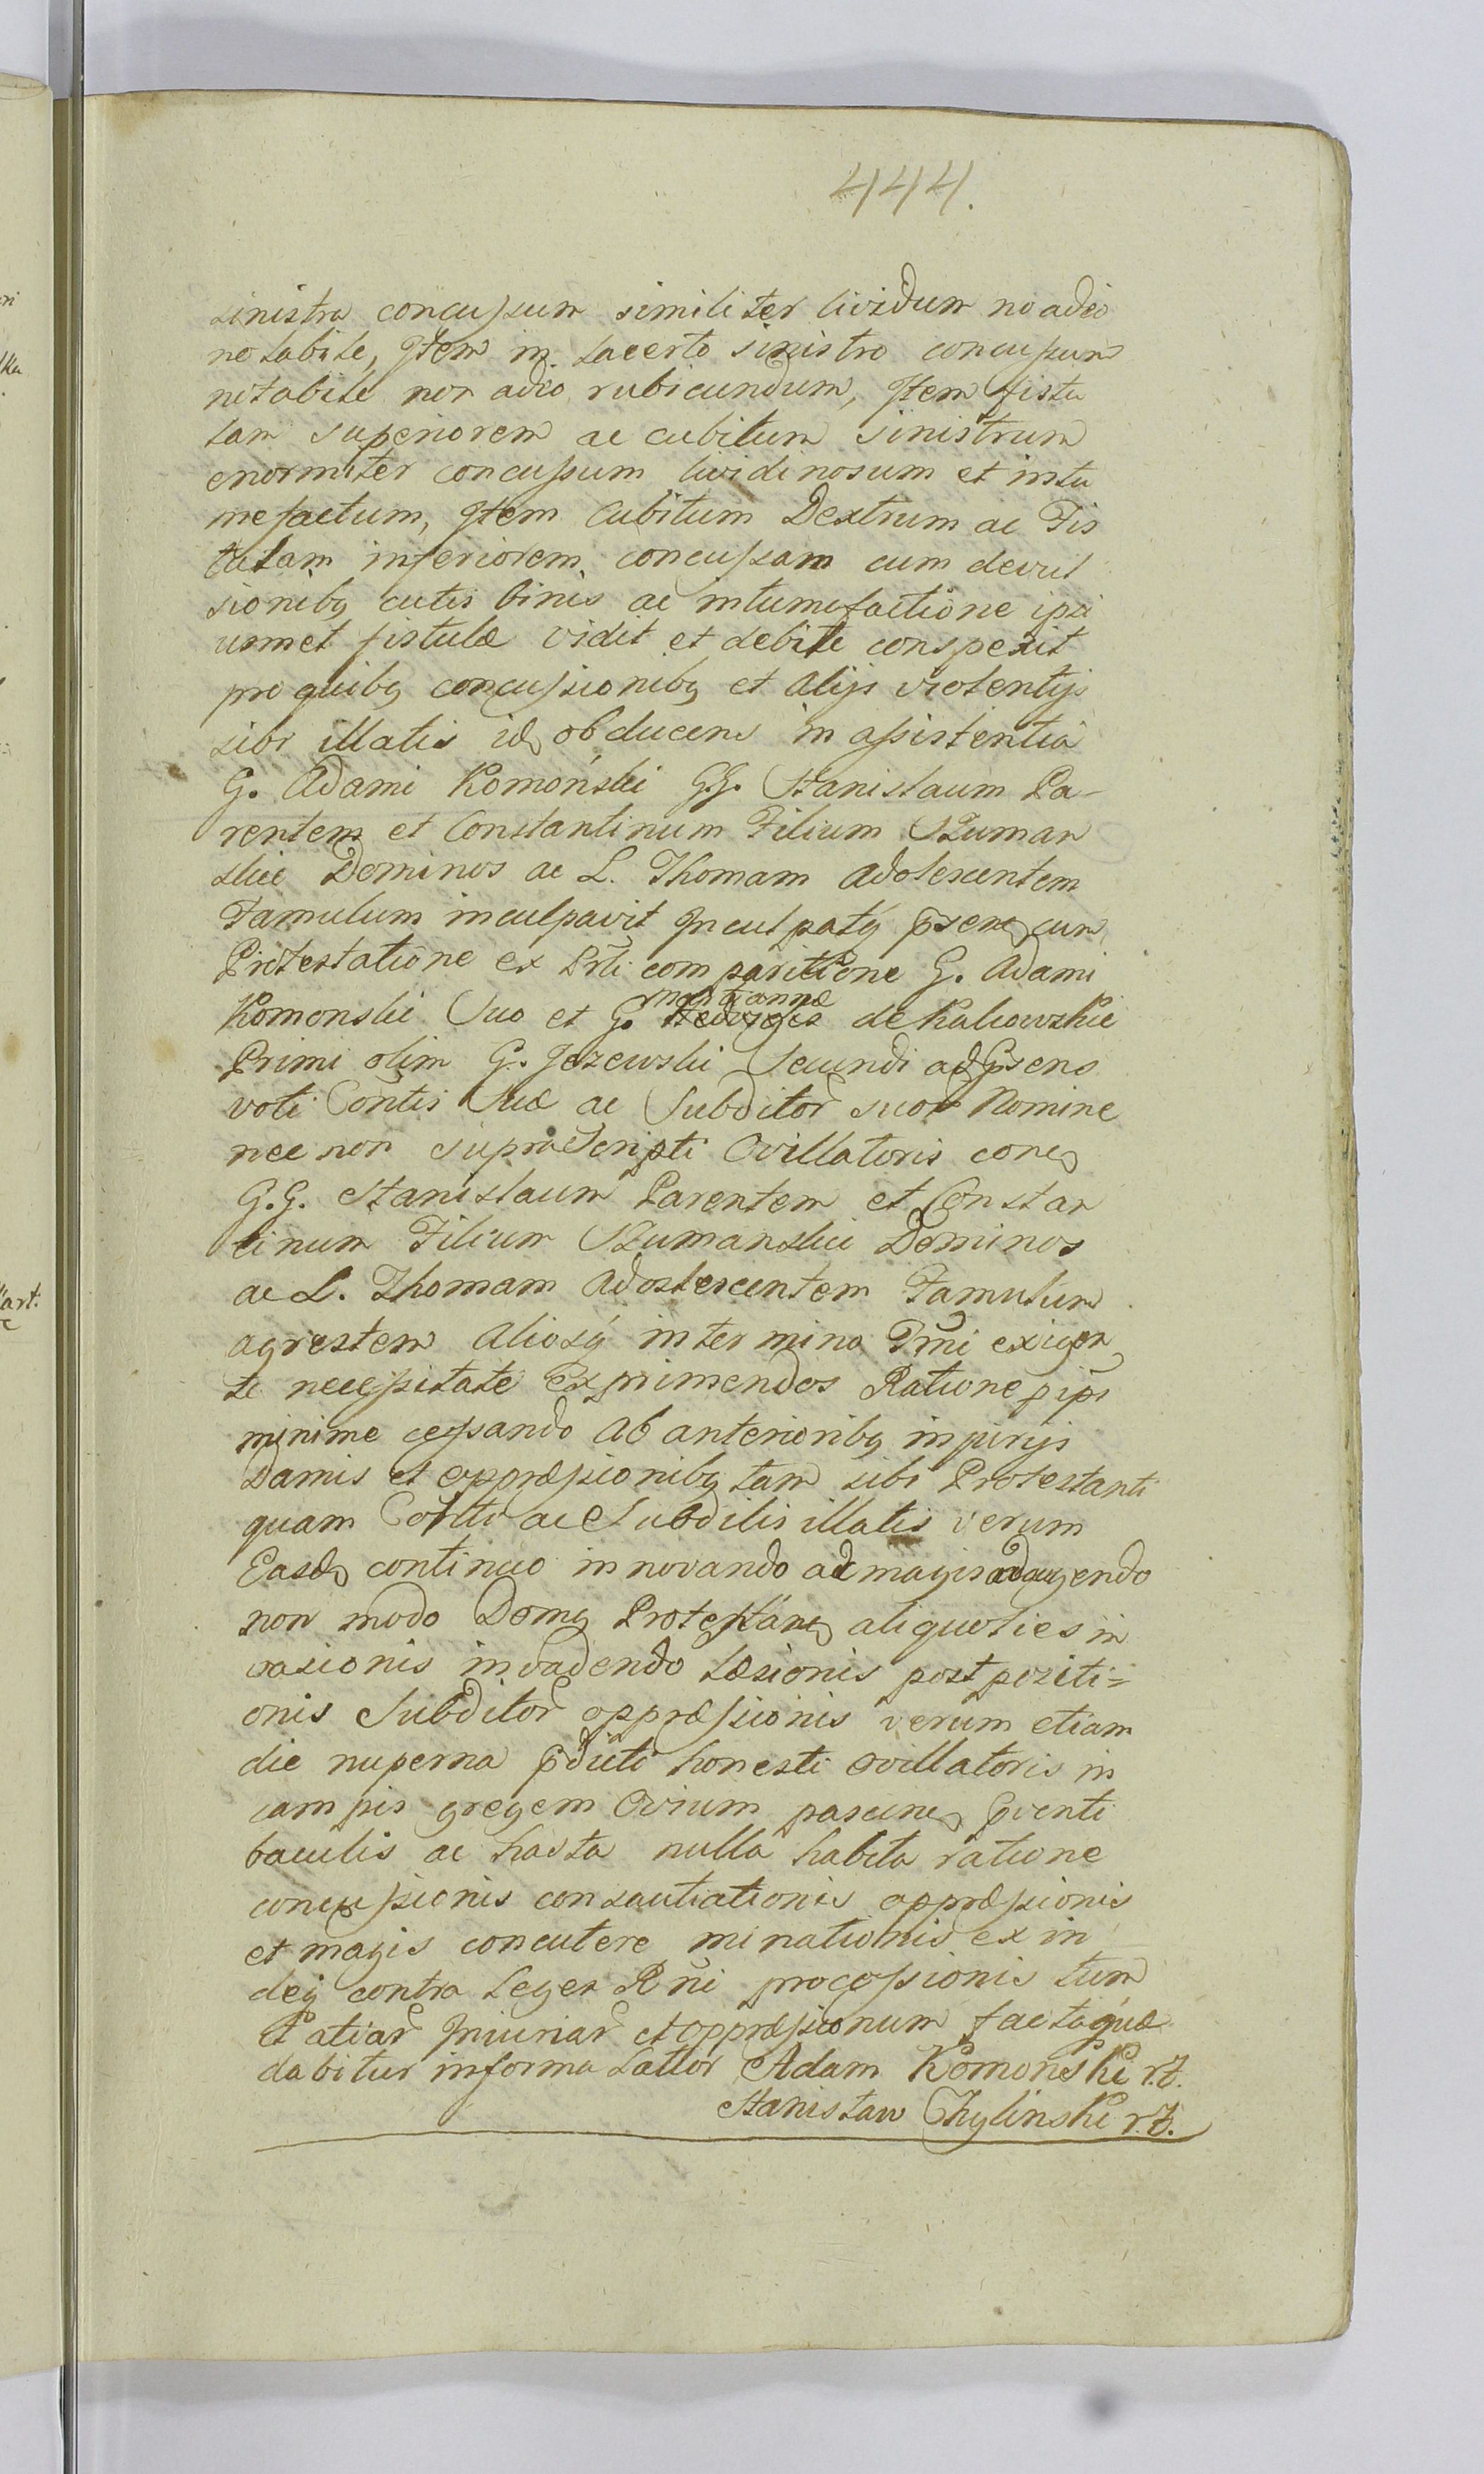 444.
sinistra concussum similiter lividum no adeo
notabile, Item in lacerto sinistro concussum
notabile non adeo rubicundum, Item fistu
lam superiorem ac cubitum sinistrum
enormiter concussum lividinosum et intu
mefactum, Item Cubitum Dextrum ac Fis
tulam inferiorem concussam cum devul
sionibq cutis binis ac intumefactione ipsi
usmet fistulæ vidit et debite conspexit
pro quibq concussionibq et alijs violentijs
sibi illatis id obducens in assistentia
G. Adami Komoński GG. Stanislaum Pa-
rentem et Constantinum Filium Szuman
skie Dominos ac L. Thomam Adolescentem
Famulum inculpavit Inculpatq psens cum
Protestatione ex Prti comparitione G. Adami
Komonski Suo et G. Mariannæ de Kaliowskie
Primi olim G. Jezewski Secundi ad Psens
voti Contis Suæ ac Subditor suor Nomine
nec non supra Scripti Ovillatoris cone
G.G. Stanislaum Parentem et Constan
tinum Filium Szumanskie Dominos
ac L. Thomam Adoslescentem Famulum
agrestem aliosq in termino Pmi exigen
te necessitate Exprimendos Ratione pipi
minime cessando ab anterioribq injurijs
Damis et oppræssionibq tam sibi Protestanti
quam ac Subditis illatis verum
Easd continuo innovando ac magis adaugendo
non modo Domq Protestane aliquoties in
vasionis invadendo læsionis postpoziti=
onis Subditor oppræssionis verum etiam
die nuperna pdicti honesti ovillatoris in
campis gregem Ovium pascene Pventi
baculis ac hasta nulla habita ratione
concussionis consautiationis oppræssionis
et magis concutere minationis ex in
deq contra Leges Rni processionis tum
et aliar Iniuriar et oppræssionum factaquæ
dabitur informa Latior Adam Komonski r.z.
Stanisław Chylinski r.z.